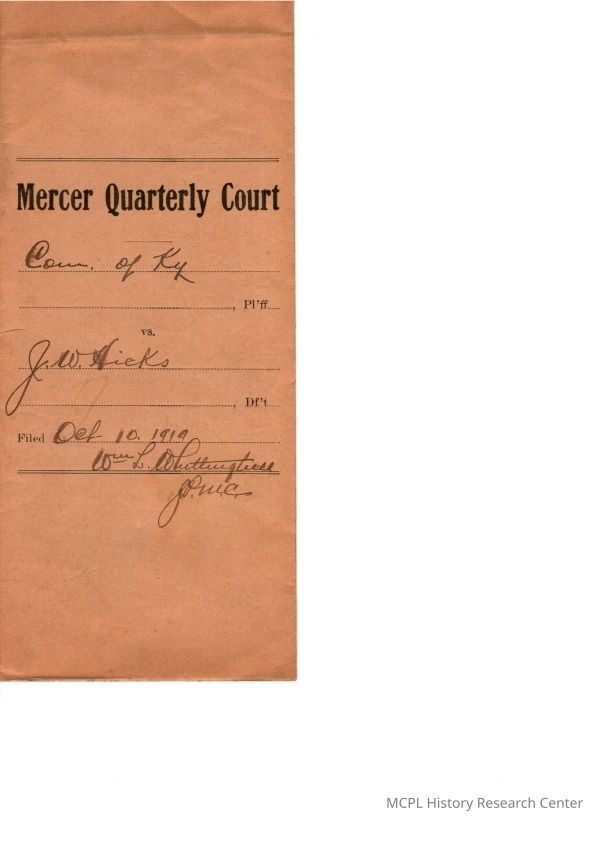 Mercer Quarterly Court
Com. of Ky
, Pl'ff.
vs.
J. W. Hicks
, Df't.
Filed Oct 10. 1919
Wm L. Whittinghill
J.P.M.C.
MCPL History Research Center